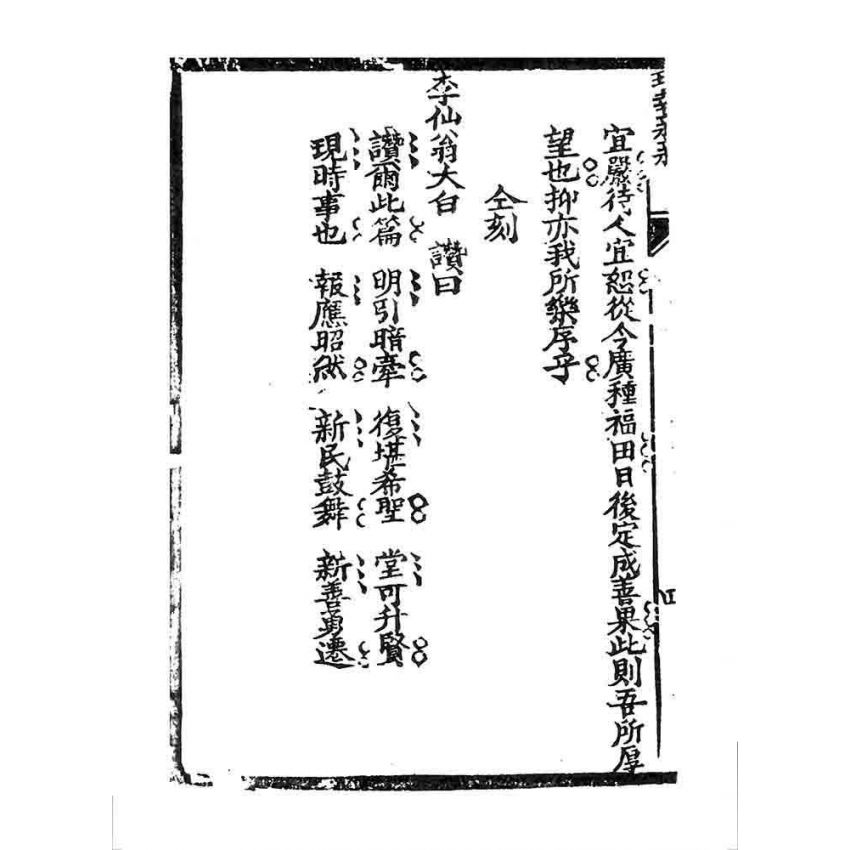 宜嚴待人宜恕從今廣種福田日後定成善果此則吾所厚
望也抑亦我所樂序乎
仝刻
李仙翁大白 讚曰
讚爾此篇 明引暗牽 復堪希聖 堂可升賢
現時事也 報應昭然 新民鼓舞 新善勇遷